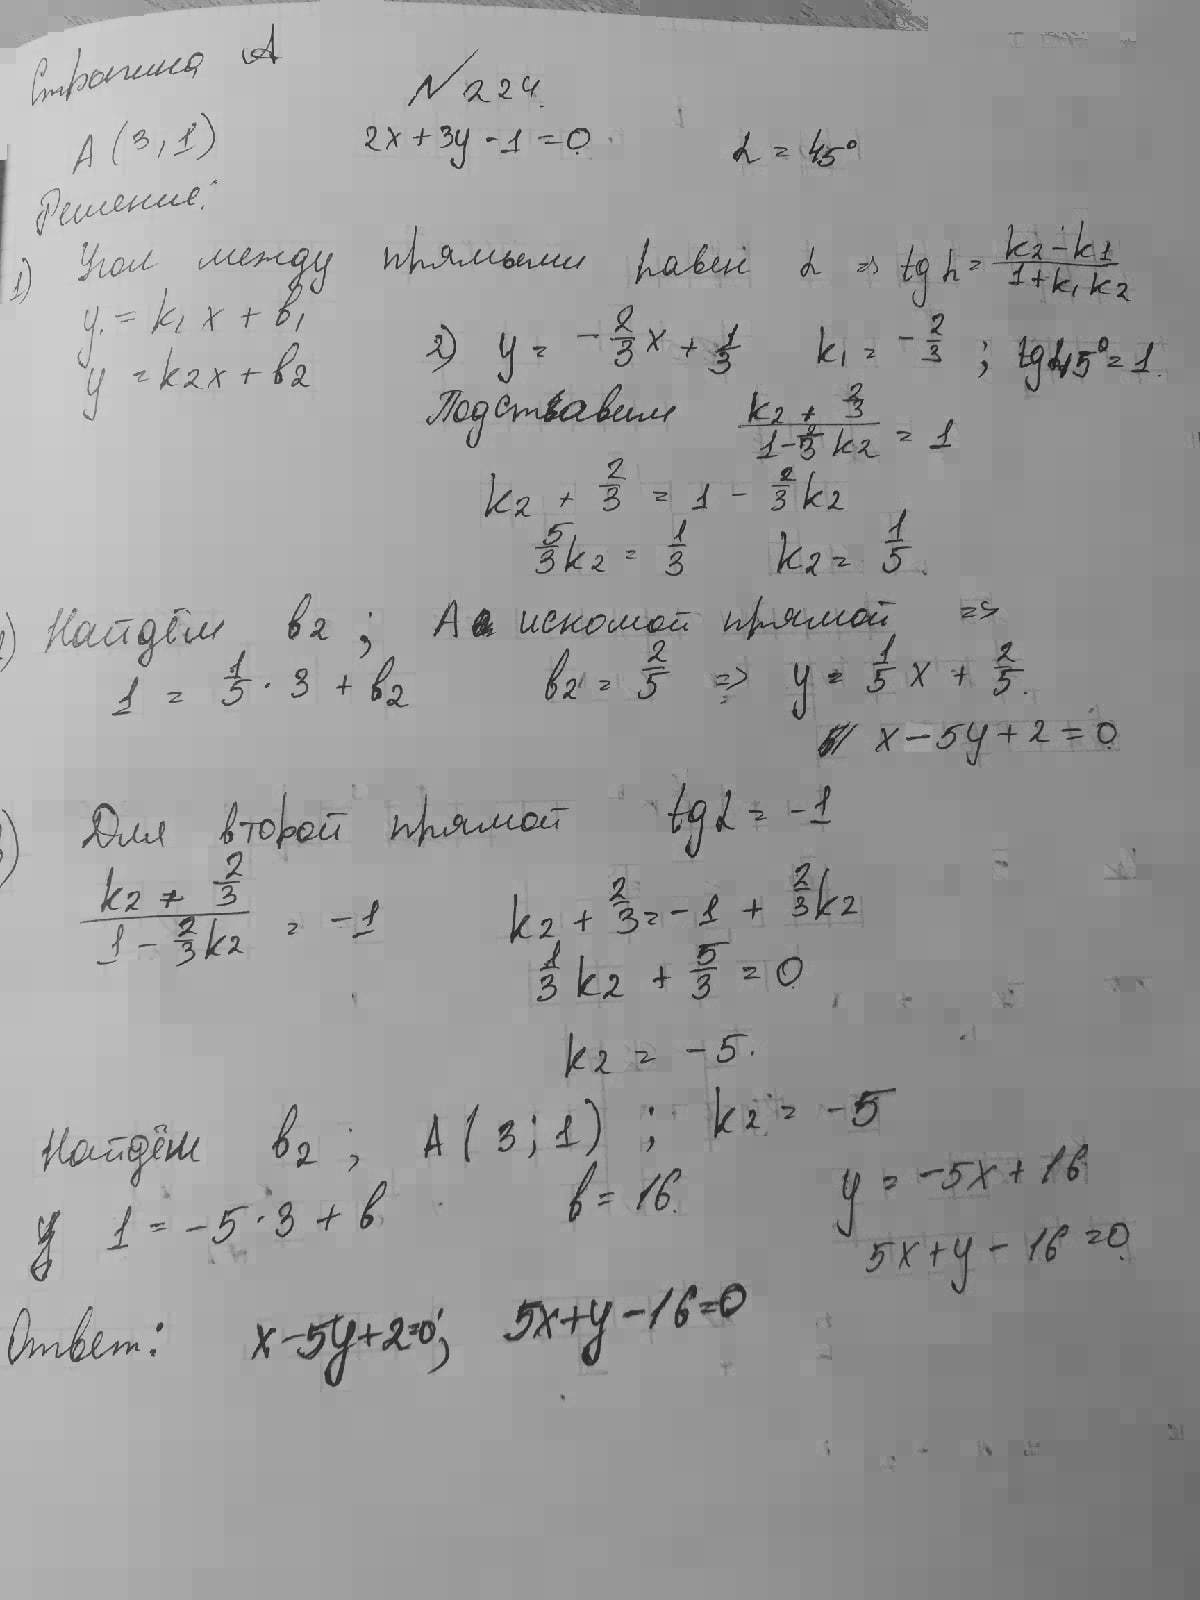 Страница А
№ 224.
A (3, 1) 2x + 3y - 1 = 0. α = 45°
Решение:
1) Угол между прямыми равен α => tg α = (k2 - k1)/(1 + k1 k2)
y = k1 x + b1
y = k2x + b2
2) y = -2/3 x + 1/3 k1 = -2/3 ; tg 45° = 1.
Подставим (k2 + 2/3)/(1 - 2/3 k2) = 1
k2 + 2/3 = 1 - 2/3 k2
5/3 k2 = 1/3 k2 = 1/5.
Найдём b2 ; A ∈ искомой прямой =>
1 = 1/5 · 3 + b2 b2 = 2/5 => y = 1/5 x + 2/5.
x - 5y + 2 = 0
Для второй прямой tg α = -1
(k2 + 2/3)/(1 - 2/3 k2) = -1 k2 + 2/3 = -1 + 2/3 k2
1/3 k2 + 5/3 = 0
k2 = -5.
Найдём b2 ; A (3 ; 1) ; k2 = -5
y 1 = -5 · 3 + b b = 16. y = -5x + 16
5x + y - 16 = 0.
Ответ: x - 5y + 2 = 0; 5x + y - 16 = 0